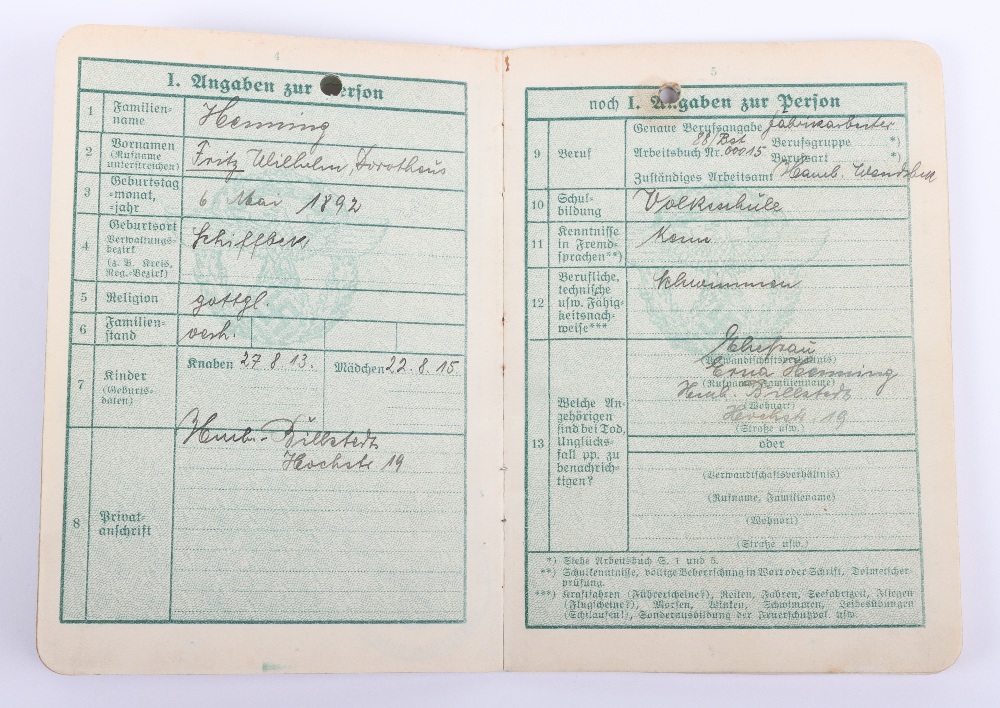 4
I. Angaben zur Person
1 Familien-
name
Henning
2 Vornamen
(Rufname
unterstreichen)
Fritz Wilhelm, Dorotheus
3 Geburtstag
-monat,
-jahr
6 Mai 1892
4 Geburtsort
Verwaltungs-
bezirk
(z. B. Kreis,
Reg.-Bezirk)
Schiffbek
5 Religion
gottgl.
6 Familien-
stand
verh.
7 Kinder
(Geburts-
daten)
Knaben 27. 8. 13. Mädchen 22. 8. 15
8 Privat-
anschrift
Hmb.-Billstedt
Hochstr 19
5
noch I. Angaben zur Person
9 Beruf
Genaue Berufsangabe Fabrikarbeiter
88/Bst Berufsgruppe *)
Arbeitsbuch Nr. 00015 Berufsart *)
Zuständiges Arbeitsamt Hamb. Wandsbek
10 Schul-
bildung
Volkschule
11 Kenntnisse
in Fremd-
sprachen**)
12 Berufliche,
technische
usw. Fähig-
keitsnach-
weise***
schwimmen
13 Welche An-
gehörigen
sind bei Tod,
Unglücks-
fall pp. zu
benachrich-
tigen?
Ehefrau
(Verwandtschaftsverhältnis)
Erna Henning
(Rufname, Familienname)
Hmb. Billstedt
(Wohnort)
Hochstr. 19
(Straße usw.)
oder
(Verwandtschaftsverhältnis)
(Rufname, Familienname)
(Wohnort)
(Straße usw.)
*) Siehe Arbeitsbuch S. 1 und 5.
**) Schulkenntnisse, völlige Beherrschung in Wort oder Schrift, Dolmetscher-
prüfung.
***) Kraftfahren (Führerscheine?), Reiten, Fahren, Seefahrtzeit, Fliegen
(Flugscheine?), Morsen, Winken, Schwimmen, Leibesübungen
(Schilaufen!), Sonderausbildung der Feuerschutzpol. usw.